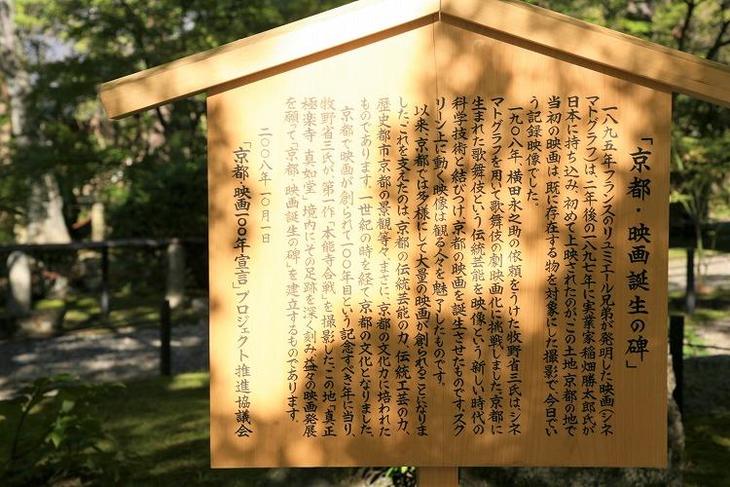 「京都・映画誕生の碑」
一八九五年フランスのリュミエール兄弟が発明した映画(シネ
マトグラフ)は、二年後の一八九七年に実業家稲畑勝太郎氏が
日本に持ち込み、初めて上映されたのが、この土地京都の地で
当初の映画は、既に存在する物を対象にした撮影で、今日でい
う記録映像でした。
一九〇八年、横田永之助の依頼をうけた牧野省三氏は、シネ
マトグラフを用いて歌舞伎の劇映画化に挑戦しました。京都に
生まれた歌舞伎という伝統芸能を映像という新しい時代の
科学技術と結びつけ、京都の映画を誕生させたものです。スク
リーン上に動く映像は観る人々を魅了したものです。
以来、京都では多様にして大量の映画が創られることになりま
した。これを支えたのは、京都の伝統芸能の力、伝統工芸の力、
歴史都市京都の景観等々、まさに、京都の文化力に培われた
ものであります。一世紀の時を経て、京都の文化となりました。
京都で映画が創られて一〇〇年目という記念すべき年に当り、
牧野省三氏が、第一作「本能寺合戦」を撮影した、この地「真正
極楽寺・真如堂」境内にその足跡を深く刻み、益々の映画発展
を願って「京都・映画誕生の碑」を建立するものであります。
二〇〇八年一〇月一日
「京都・映画一〇〇年宣言」プロジェクト推進協議会